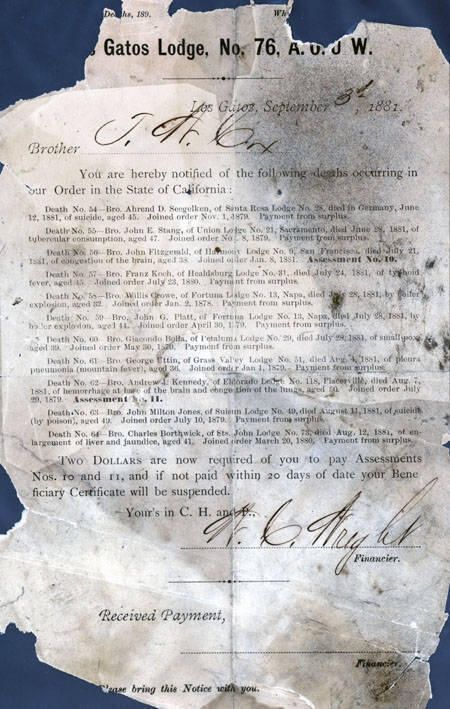 Deaths, 189.
Gatos Lodge, No. 76, A. O. U W.
Los Gatos, September 3d, 1881.
Brother J. W. Cox
You are hereby notified of the following deaths occurring in
our Order in the State of California:
Death No. 54—Bro. Ahrend D. Seegelken, of Santa Rosa Lodge No. 28, died in Germany, June
12, 1881, of suicide, aged 45. Joined order Nov. 1, 1879. Payment from surplus.
Death No. 55—Bro. John E. Stang, of Union Lodge No. 21, Sacramento, died June 28, 1881, of
tubercular consumption, aged 47. Joined order No . 8, 1879. Payment from surplus.
Death No. 56—Bro. John Fitzgerald, of Harmony Lodge No. 9, San Francisco, died July 21,
1881, of congestion of the brain, aged 38. Joined order Jan. 8, 1881. Assessment No. 10.
Death No. 57—Bro. Franz Koch, of Healdsburg Lodge No. 31, died July 24, 1881, of typhoid
fever, aged 45. Joined order July 23, 1880. Payment from surplus.
Death No. 58—Bro. Willis Crowe, of Fortuna Lodge No. 13, Napa, died July 28, 1881, by boiler
explosion, aged Joined order Jan. 2, 1878. Payment from surplus.
Death No. 59—Bro. John G. Platt, of Fortuna Lodge No. 13, Napa, died July 28, 1881, by
boiler explosion, aged 44. Joined order April 30, 1879. Payment from surplus.
Death No. 60—Bro. Giacondo Bolla, of Petaluma Lodge No. 29, died July 28, 1881, of smallpox,
aged 39. Joined order May 30, Payment from surplus.
Death No. 61—Bro. George Uttin, of Grass Valley Lodge No. 51, died Aug. 4, 1881, of pleura
pneumonia (mountain fever), aged 36. Joined order Jan. 1, 1879. Payment from surplus.
Death No. 62—Bro. Andrew J. Kennedy, of Eldorado Lodge No. 118, Placerville, died Aug. 7,
1881, of hemorrhage at base of the brain and congestion of the lungs, aged 40. Joined order July
29, 1879. Assessment No. 11.
Death No. 63—Bro. John Milton Jones, of Suisun Lodge No. 49, died August 11, 1881, of suicide
(by poison), aged 49. Joined order July 10, 1879. Payment from surplus.
Death No. 64—Bro. Charles Borthwick, of Sts. John Lodge No. 73, died Aug. 12, 1881, of en-
largement of liver and jaundice, aged 41. Joined order March 20, 1880. Payment from surplus.
Two Dollars are now required of you to pay Assessments
Nos. 10 and 11, and if not paid within 20 days of date your Bene
ficiary Certificate will be suspended.
Your's in C. H. and P.,
Wright
Financier.
Received Payment,
Financier.
Please bring this Notice with you.